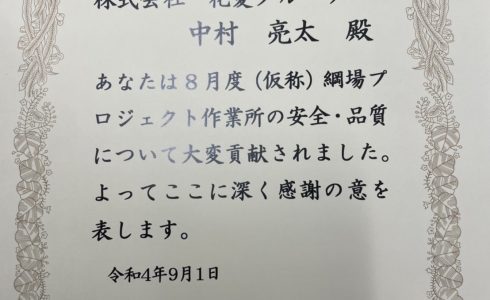 株式会社 花菱グループ
中村 亮太 殿
あなたは8月度(仮称)綱場プ
ロジェクト作業所の安全・品質
について大変貢献されました。
よってここに深く感謝の意を
表します。
令和4年9月1日